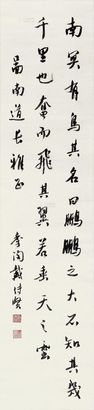 南冥有鳥其名曰鵬鵬之大不知其幾
千里也奮而飛其翼若垂天之雲
啚南道長雅正
季陶戴傳賢